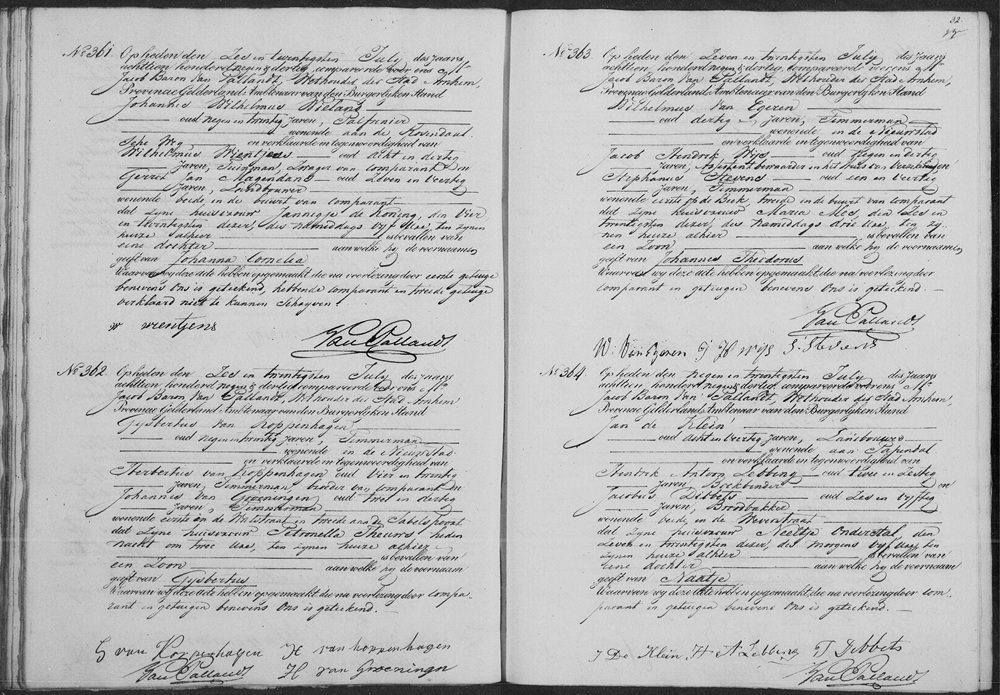 No 361 Op heden den Zes en twintigsten July des jaars
achttien honderd negen & dertig, compareerde voor ons Mr
Jacob Baron Van Pallandt, Wethouder der Stad Arnhem,
Provincie Gelderland Ambtenaar van den Burgerlyken Stand
Johannes Wilhelmus Wieland
oud negen en twintig Jaren,
wonende aan de Rosendaal
sche Weg en verklaarde in tegenwoordigheid van
Wilhelmus Wientjens oud acht en dertig
Jaren, Tuinman, Zwager van Comparant en
Gerrit Jan Hagendans oud Zeven en Veertig
Jaren, Landbouwer
wonende beide, in de buurt van comparant
dat zyne huisvrouw Jannigje de Koning, den Vier
en twintigsten dezer, des namiddags vyf Ure, ten zynen
huize alhier is bevallen van
eene dochter aan welke hy de voornamen
geeft van Johanna Cornelia
Waarvan wy deze acte hebben opgemaakt die na voorlezing door eerste getuige
benevens Ons is geteekend, hebbende comparant en tweede getuige
verklaard niet te kunnen Schryven
W wientjens
Van Pallandt
No 362 Op heden den Zes en twintigsten July des jaars
achttien honderd negen & dertig compareerde voor ons Mr
Jacob Baron Van Pallandt, Wethouder der Stad Arnhem
Provincie Gelderland Ambtenaar van den Burgerlyken Stand
Gysbertus van Koppenhagen
oud negen en twintig Jaren, Timmerman
wonende in de Nieuwstad
en verklaarde in tegenwoordigheid van
van Koppenhagen oud Vier en twintig
Jaren, Timmerman broeder van Comparant en
Johannes van Groeningen oud twee en dertig
Jaren, Timmerman
wonende eerste in de en tweede aan de Sabelspoort
dat zyne huisvrouw Petronella Theunis heden
nacht om twee Ure, ten zynen huize alhier
is bevallen van
een Zoon aan welke hy de voornaam
geeft van Gysbertus
Waarvan wy deze acte hebben opgemaakt die na voorlezing door compa-
rant en getuigen benevens Ons is geteekend.
G van Koppenhagen H van koppenhagen
Van Pallandt H van Groeningn
32
No 363 Op heden den Zeven en twintigsten July des jaars
achttien honderd negen & dertig compareerde voor ons Mr
Jacob Baron Van Pallandt, Wethouder der Stad Arnhem,
Provincie Gelderland Ambtenaar van den Burgerlyken Stand
Wilhelmus Van Egeren
oud dertig Jaren, Timmerman
wonende in de Nieuwstad
en verklaarde in tegenwoordigheid van
Jacob Hendrik Wijs oud Negen en dertig
Jaren,
Stephanus Stevens oud een en veertig
Jaren, Timmerman
wonende eerste op de Beek, tweede in de buurt van comparant
dat zyne huisvrouw Maria Mos, den Zes en
twintigsten dezer, des namiddags drie Ure, ten zy-
nen huize alhier is bevallen van
een Zoon aan welke hy de voornamen
geeft van Johannes Theodorus
Waarvan wy deze acte hebben opgemaakt die na voorlezing door
comparant en getuigen benevens Ons is geteekend.
Van Pallandt
W: Van Egeren J H Wijs S: Stevens
No 364 Op heden den negen en twintigsten July des jaars
achttien honderd negen & dertig, compareerde voor ons Mr
Jacob Baron Van Pallandt, Wethouder der Stad Arnhem,
Provincie Gelderland Ambtenaar van den Burgerlyken Stand
Jan de Klein
oud acht en veertig Jaren, Landbouwer
wonende aan Papendal
en verklaarde in tegenwoordigheid van
Hendrik Anton Lebbing oud twee en Zestig
Jaren, Boekbinder
Jacobus Dibbets oud Zes en vyftig
Jaren, Broodbakker
wonende beide in de Weverstraat
dat zyne huisvrouw Neeltje Onderstal, den
Zeven en twintigsten dezer, des morgens vyf Ure, ten
zynen huize alhier is bevallen van
eene dochter aan welke hy de voornaam
geeft van Naatje
Waarvan wy deze acte hebben opgemaakt die na voorlezing door com-
parant en getuigen benevens Ons is geteekend.
J De Klein H A Lebbing J Dibbets
Van Pallandt